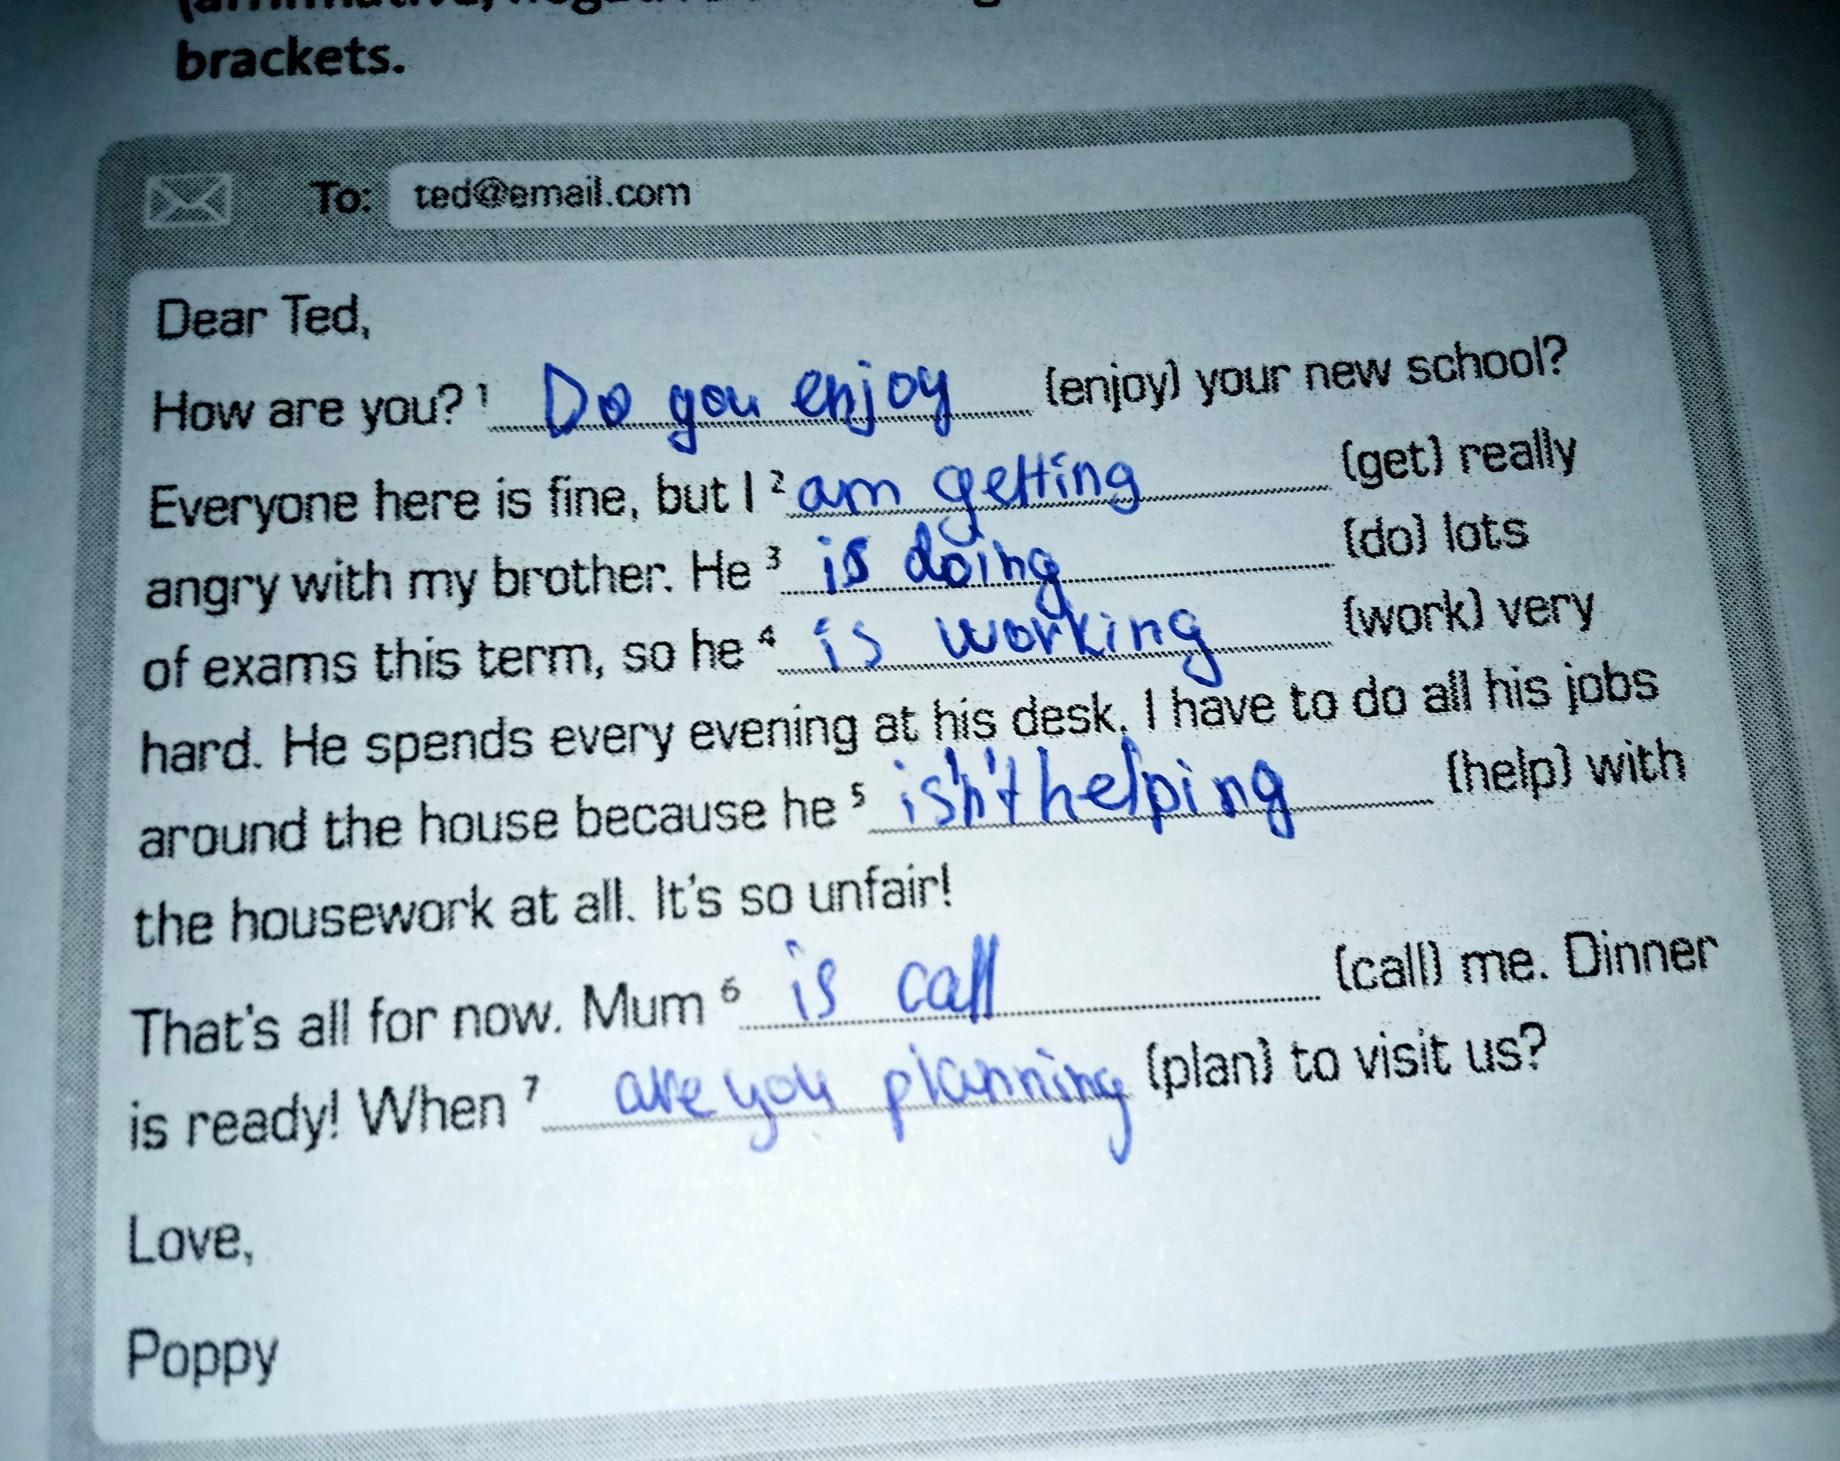 brackets.
To: ted@email.com
Dear Ted,
How are you? 1 Do you enjoy (enjoy) your new school?
Everyone here is fine, but I 2 am getting (get) really
angry with my brother. He 3 is doing (do) lots
of exams this term, so he 4 is working (work) very
hard. He spends every evening at his desk. I have to do all his jobs
around the house because he 5 isn't helping (help) with
the housework at all. It's so unfair!
That's all for now. Mum 6 is call (call) me. Dinner
is ready! When 7 are you planning (plan) to visit us?
Love,
Poppy